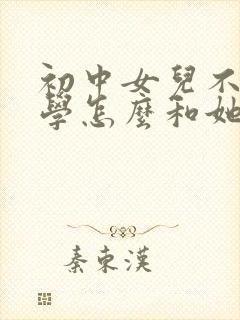 初中女兒不
學怎麼和她
秦東漢